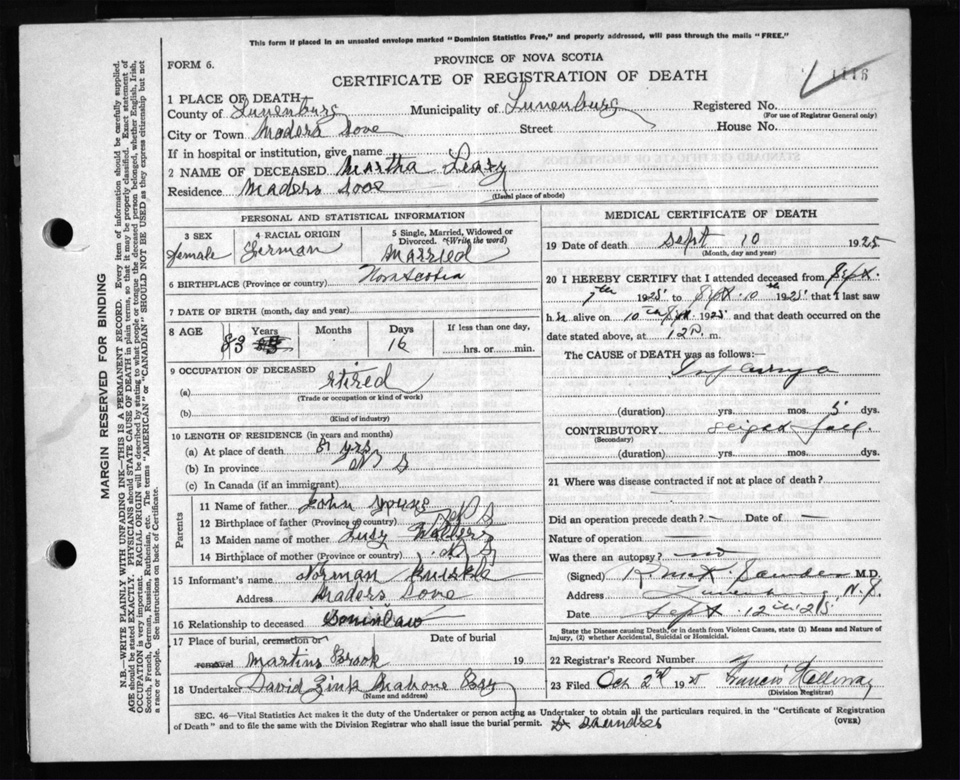 This form if placed in an unsealed envelope marked "Dominion Statistics Free," and properly addressed, will pass through the mails "FREE."
FORM 6.
PROVINCE OF NOVA SCOTIA
CERTIFICATE OF REGISTRATION OF DEATH
1 PLACE OF DEATH
County of Lunenburg Municipality of Lunenburg Registered No.
(For use of Registrar General only)
City or Town Maders Cove Street House No.
If in hospital or institution, give name
2 NAME OF DECEASED Martha Leary
Residence Maders Cove
(Usual place of abode)
PERSONAL AND STATISTICAL INFORMATION
3 SEX 4 RACIAL ORIGIN 5 Single, Married, Widowed or Divorced. (Write the word)
female German Married
6 BIRTHPLACE (Province or country) Nova Scotia
7 DATE OF BIRTH (month, day and year)
8 AGE Years Months Days If less than one day,
83 16 hrs. or min.
9 OCCUPATION OF DECEASED
(a) retired
(Trade or occupation or kind of work)
(b)
(Kind of industry)
10 LENGTH OF RESIDENCE (in years and months)
(a) At place of death yrs
(b) In province N S
(c) In Canada (if an immigrant)
Parents
11 Name of father John
12 Birthplace of father (Province or country) N S
13 Maiden name of mother Lusy
14 Birthplace of mother (Province or country) N S
15 Informant's name Norman
Address Maders Cove
16 Relationship to deceased Soninlaw
17 Place of burial, cremation or removal Date of burial
Martins Brook 19
18 Undertaker David Zink Mahone Bay
(Name and address)
MEDICAL CERTIFICATE OF DEATH
19 Date of death Sept 10 1925
(Month, day and year)
20 I HEREBY CERTIFY that I attended deceased from Sept.
7th 1925 to Sept. 10th 1925 that I last saw
h alive on 10th Sept 1925 and that death occurred on the
date stated above, at 12 m.
The CAUSE OF DEATH was as follows:
(duration) yrs. mos. 5 dys.
CONTRIBUTORY
(Secondary)
(duration) yrs. mos. dys.
21 Where was disease contracted if not at place of death?
Did an operation precede death? — Date of —
Nature of operation —
Was there an autopsy? no
(Signed) Saunders M.D.
Address Lunenburg, N.S.
Date Sept. 12th 1925
State the Disease causing Death, or in death from Violent Causes, state (1) Means and Nature of Injury, (2) whether Accidental, Suicidal or Homicidal.
22 Registrar's Record Number
23 Filed Oct 2nd 1925 Francis
(Division Registrar)
SEC. 46—Vital Statistics Act makes it the duty of the Undertaker or person acting as Undertaker to obtain all the particulars required in the "Certificate of Registration
of Death" and to file the same with the Division Registrar who shall issue the burial permit. Dr Saunders (OVER)
MARGIN RESERVED FOR BINDING
N.B.—WRITE PLAINLY WITH UNFADING INK—THIS IS A PERMANENT RECORD. Every item of information should be carefully supplied.
AGE should be stated EXACTLY. PHYSICIANS should STATE CAUSE OF DEATH in plain terms, so that it may be properly classified. Exact statement of
OCCUPATION is very important. RACIAL ORIGIN will be described by stating to what people or tongue the deceased person belonged, whether English, Irish,
Scotch, French, German, Russian, Ruthenian, etc. The terms "AMERICAN" or "CANADIAN" SHOULD NOT BE USED as they express citizenship but not
a race or people. See instructions on back of Certificate.